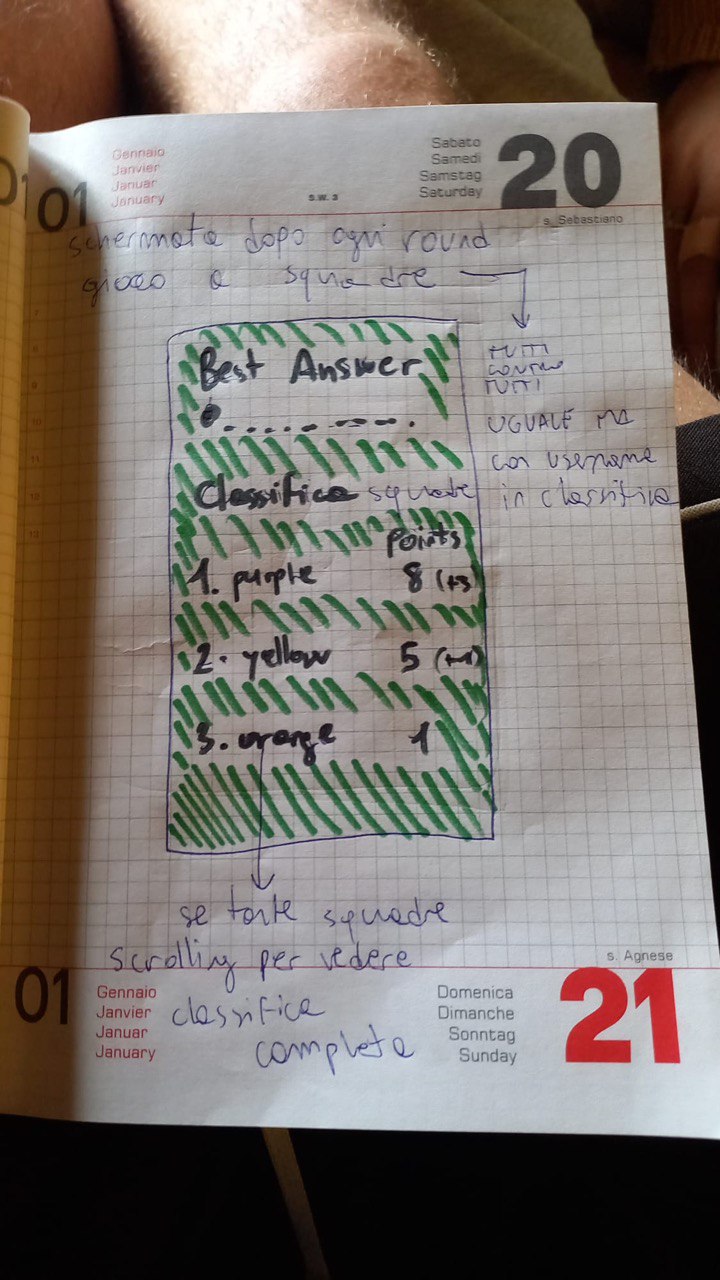 01
Gennaio
Janvier
Januar
January
S.W. 3
Sabato
Samedi
Samstag
Saturday
20
s. Sebastiano
schermata dopo ogni round
gioco a squadre
TUTTI
CONTRO
TUTTI
UGUALE MA
con username
in classifica
Best Answer
Classifica squadre
Points
1. purple 8 (+3)
2. yellow 5 (+1)
3. orange 1
se tante squadre
scrolling per vedere
classifica
completa
s. Agnese
01
Gennaio
Janvier
Januar
January
Domenica
Dimanche
Sonntag
Sunday
21